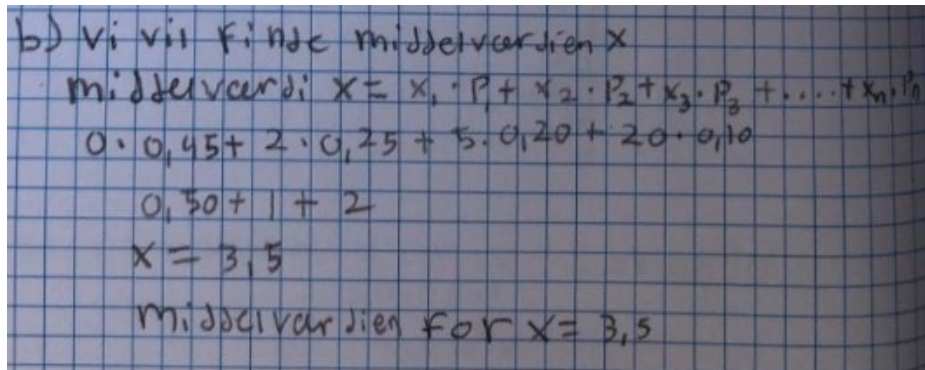 b) Vi vil finde middelværdien X
middelværdi X = x₁ · P₁ + x₂ · P₂ + x₃ · P₃ + .... + xₙ · Pₙ
0 · 0,45 + 2 · 0,25 + 5 · 0,20 + 20 · 0,10
0,50 + 1 + 2
X = 3,5
middelværdien for X = 3,5